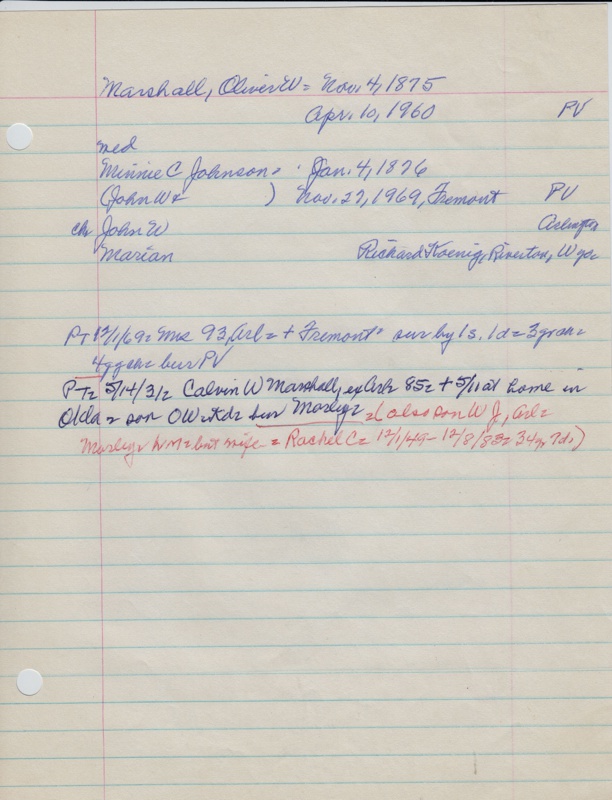 Marshall, Oliver W = Nov. 4, 1875
Apr. 10, 1960 PV
med
Minnie C Johnson = Jan. 4, 1876
(John W + ) Nov. 27, 1969, Fremont PV
ch John W Arlington
Marian Richard Koenig, Riverton, Wyo
PT 12/1/69 = Mrs 93, Arl = + Fremont = sur by 1s, 1d = 3 gran =
4 ggch = bur PV
PT = 5/14/31 = Calvin W Marshall, ex Arl = 85 = + 5/11 at home in
Okla = son OW + d = bur Marley = (also son W J, Arl =
Marley NM = but wife = Rachel C = 12/1/49 - 12/8/83 = 34y, 7d,)